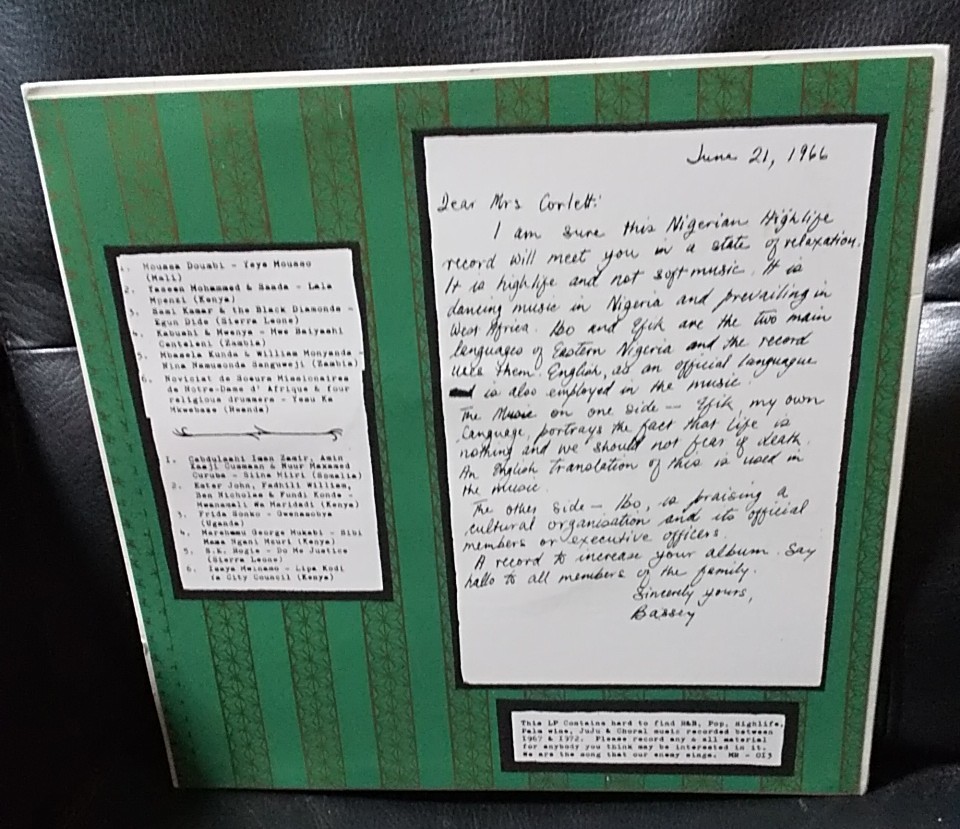 1. Moussa Doumbi - Yeye Mousso
(Mali)
2. Yaseen Mohammed & Saada - Lala
Mpenzi (Kenya)
3. Sami Kamar & the Black Diamonds -
Egun Dide (Sierra Leone)
4. Kabushi & Mwenye - Mwe Baiyashi
Cantaleni (Zambia)
5. Mbasela Kunda & William Monyanda -
Nina Namusonda Sanguweji (Zambia)
6. Noviciat de Soeurs Missionaires
de Notre-Dame d' Afrique & four
religious drummers - Yesu Ka
Mkwebaze (Rwanda)
1. Cabdulaahi Iman Zamir, Amin
Xaaji Cusmaan & Nuur Maxamed
Curuba - Siina Hiiri (Somalia)
2. Ester John, Fadhili William,
Ben Nicholas & Fundi Konde -
Mwanamali Wa Maridadi (Kenya)
3. Frida Sonko - Gwenasobya
(Uganda)
4. Marehemu George Mukabi - Sibi
Mama Ngani Mzuri (Kenya)
5. S.E. Rogie - Do Me Justice
(Sierra Leone)
6. Isaya Mwinamo - Lipa Kodi
ya City Council (Kenya)
June 21, 1966
Dear Mrs Corlett:
I am sure this Nigerian Highlife
record will meet you in a state of relaxation.
It is highlife and not soft music. It is
dancing music in Nigeria and prevailing in
West Africa. Ibo and Efik are the two main
languages of Eastern Nigeria and the record
uses them. English, as an official languague
is also employed in the music.
The Music on one side -- Efik, my own
language, portrays the fact that life is
nothing and we should not fear of death.
An English translation of this is used in
the music.
The other side - Ibo, is praising a
cultural organisation and its official
members or executive officers.
A record to increase your album. Say
hallo to all members of the family.
Sincerely yours,
Bassey
This LP Contains hard to find R&B, Pop, Highlife,
Palm wine, JuJu & Choral music recorded between
1967 & 1972. Please record any & all material
for anybody you think may be interested in it.
We are the song that our enemy sings. MR - 013